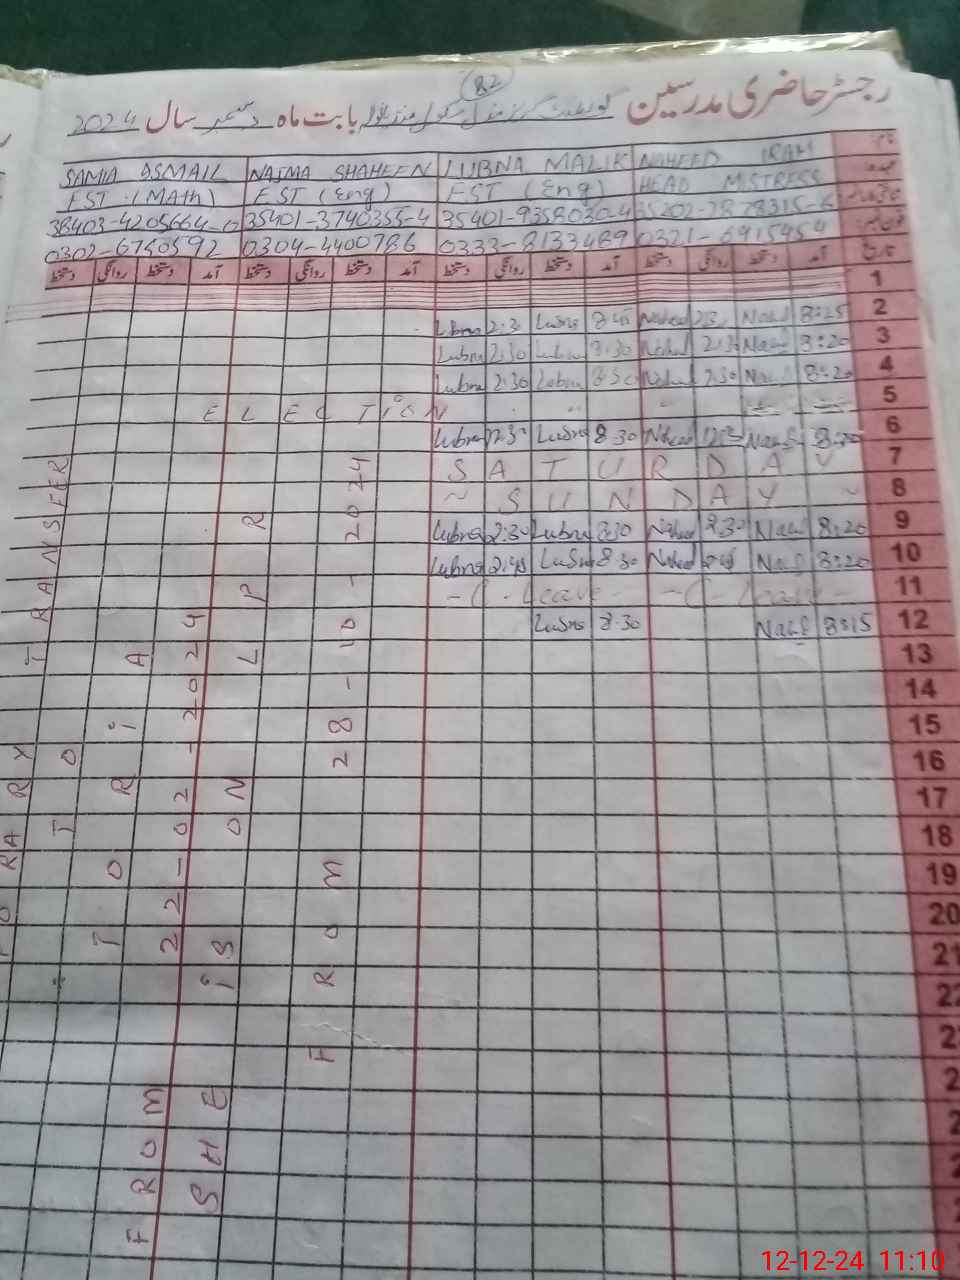 82
رجسٹر حاضری مدرسین گورنمنٹ گرلز مڈل سکول بابت ماہ دسمبر سال 2024
نام NAHEED IRAM LUBNA MALIK NAJMA SHAHEEN SAMIA ISMAIL
عہدہ HEAD MISTRESS EST (Eng) EST (Eng) EST (Math)
35202-2878315-6 35401-9358030-4 35401-3740355-4 38403-4205664-0
0321-6915454 0333-8133469 0304-4400786 0302-6750592
تاریخ آمد دستخط روانگی دستخط آمد دستخط روانگی دستخط آمد دستخط روانگی دستخط آمد دستخط روانگی دستخط
1
Lubna 2:30 Lubna 8:45 Naheed Nahd 8:25 2
Lubna 2:30 Lubna 8:30 Naheed 2:30 Nahd 8:20 3
Lubna 2:30 Lubna Naheed 2:30 Nahd 8:20 4
ELECTION 5
Lubna 12:30 Lubna 8:30 Naheed Nahd 6
SATURDAY 7
~ SUNDAY ~ 8
Lubna 2:30 Lubna 8:30 Naheed 2:30 Nahd 8:20 9
Lubna 2:45 Lubna 8:30 Naheed 2:45 Nahd 8:20 10
Leave Leave 11
Lubna 8:30 Nahd 8:15 12
13
14
15
16
17
18
19
20
21
22
TRANSFER
TO
TORIA
FROM 22-02-2024
SHE IS ON LPR
FROM 28-10-2024
12-12-24 11:10